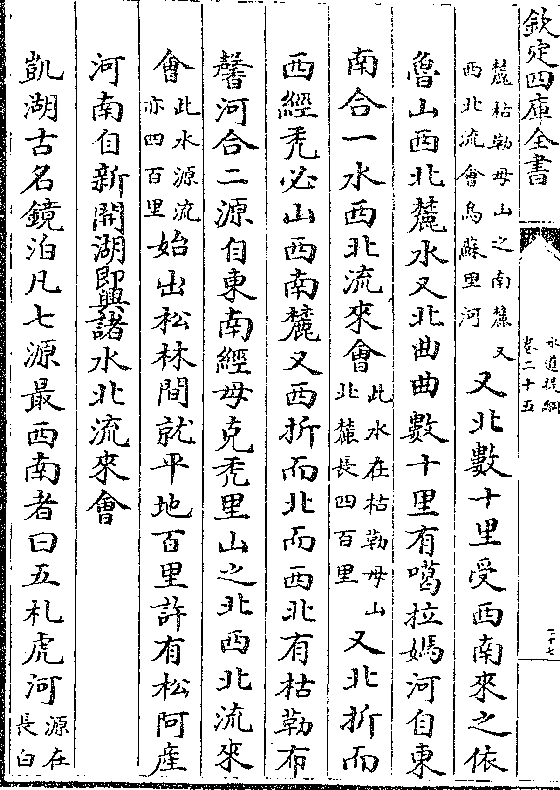 欽定四庫全書
水道提綱
卷二十五
二十七
麓枯勒母山之南麓又
西北流會烏蘇里河
又北數十里受西南來之依
魯山西北麓水又北曲曲數十里有噶拉媽河自東
南合一水西北流來會
此水在枯勒母山
北麓長四百里
又北折而
西經禿必山西南麓又西折而北而西北有枯勒布
馨河合二源自東南經母克禿里山之北西北流來
會
此水源流
亦四百里
始出松林間就平地百里許有松阿産
河南自新開湖即興諸水北流來會
凱湖古名鏡泊凡七源最西南者曰五札虎河
源在
長白